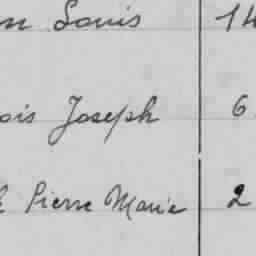 Louis 14
Joseph 6
Pierre Marie 2